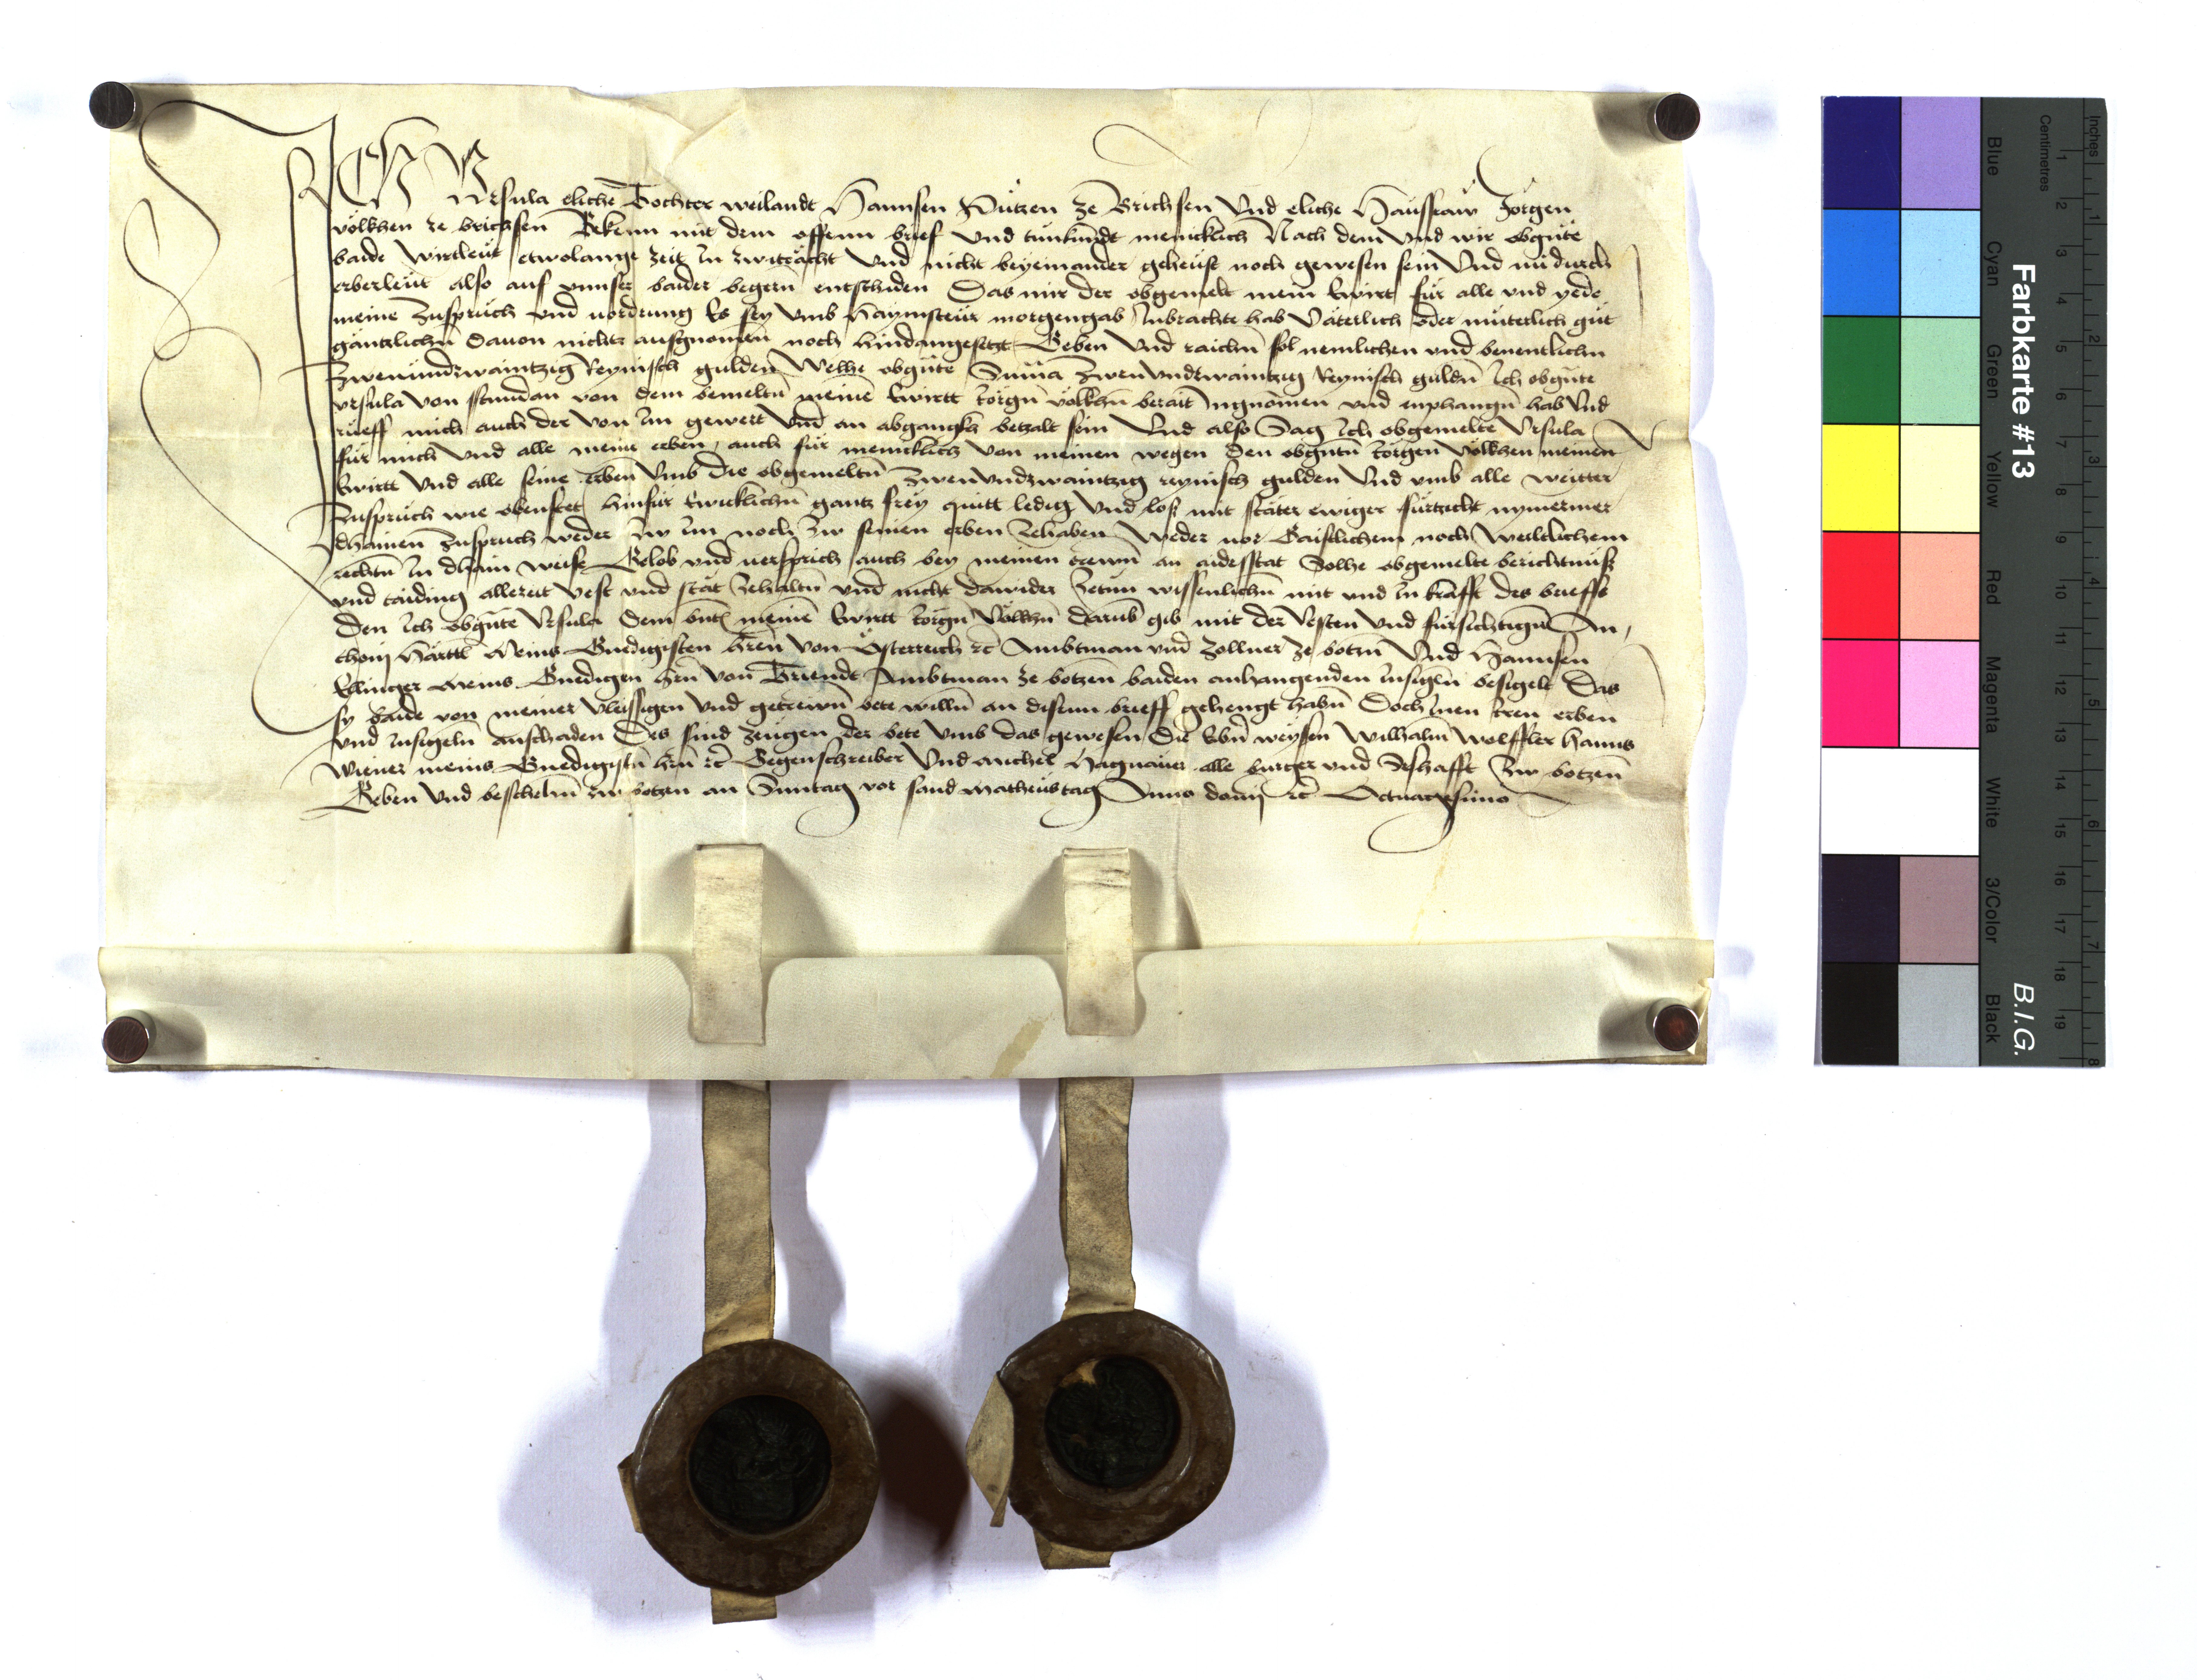 Ich Vrsula eliche Tochter weilandt Hannsen Putzen ze Brichsen Vnd eliche Haüsfraw Jörgen
völkhen ze brichsen Bekenn mit dem offenn brief vnd tünkündt menicklich Nach dem vnd wir obgūte
baide wirtleüt etwolange zeit In zwiträcht vnd nicht beyeinander geheüst noch gewesen sein Vnd nü durch
erberleüt also auf vnnser baider begern entschiden Das mir der obgemelt mein Ewirt für alle vnd yede
meine züsprüch vnd uordrung Es sey vmb Haymsteür morgengab Inbrachte hab Väterlich oder müterlich güt
gäntzlichn̄ Dauon nichtz ausgnomen noch hindangesetzt Geben vnd raichn̄ sol nemlichen vnd benentlichn
Zwenundzwaintzig Reynisch gulden Welhe obgūte Suma zwenvndzwaintzig Reynisch guldn̄ Ich obgūte
vrsula von stundan von dem bemeltn̄ meinē Ewirtt Jörgn̄ völkhn̄ berait Ingnomen vnd enphangn̄ hab Vnd
rüeff mich auch der von Im gewert vnd an abgangkh betzalt sein Vnd also Sag Ich obgemelte Vrsula
für mich vnd alle meine erben, auch für menicklich von meinen wegen Den obgūtn̄ Jörgen Völkhen meinen
Ewirtt Vnd alle seine Erben Vmb die obgemeltn̄ Zwenvndzwaintzig reynisch gulden Vnd vmb alle weitter
Züsprüch wie obenstet hinfür Ewicklichn̄ gantz frey quitt ledig Vnd los mit stäter ewiger fürtzicht nymermer
dhainen züspruch weder zw Im noch zw seinen erben zehaben Weder vor Gaistlichem noch Weiltlichem
rechtn̄ In dhain weise Gelob vnd uersprich auch bey meinen trewn̄ an aidesstat Solhe obgemelte berichtnüß
vnd taiding allezeit vest vnd stät zehaltn̄ vnd nicht dawider zetun wissenlichn̄ mit vnd In krafft des brieffs
Den Ich obgūte Vrsula Dem meinē Ewirtt Jörgn̄ Völkhn̄ darūb gib mit der Vesten Vnd fürsichtign̄ An,
thonj Härttl Meins Gnedigisten hern̄ von Österreich rc̄ Ambtman vnd Zollner ze botzn̄ Vnd Hannsen
Ellinger Meins Gnedigen hern̄ von Trienndt Ambtman ze botzen baiden anhangenden Insigln̄ besigelt Das
sy baide von meiner vleissigen vnd getrewn̄ bete willn̄ an disenn brieff gehengt habn̄ Doch Inen Iren erben
vnd Insigeln anschaden Des sind zeügen der bete Vmb das gewesen Die Ebn̄ weysen Wilhalm Wolffler Hanns
Wiener meins Gnedigistn̄ hern̄ rc̄ Gegenschreiber Vnd Michel Hagnauer alle burger vnd Seshafft zw botzen̄
Geben Vnd beschehn̄ zw botzen an Sunntag vor sand Matheüstag Anno domj rc̄ Octuagesimo
Farbkarte #13
B.I.G.
Inches
Centimetres
Blue Cyan Green Yellow Red Magenta White 3/Color Black
1 2 3 4 5 6 7 8 9 10 11 12 13 14 15 16 17 18 19
1 2 3 4 5 6 7 8